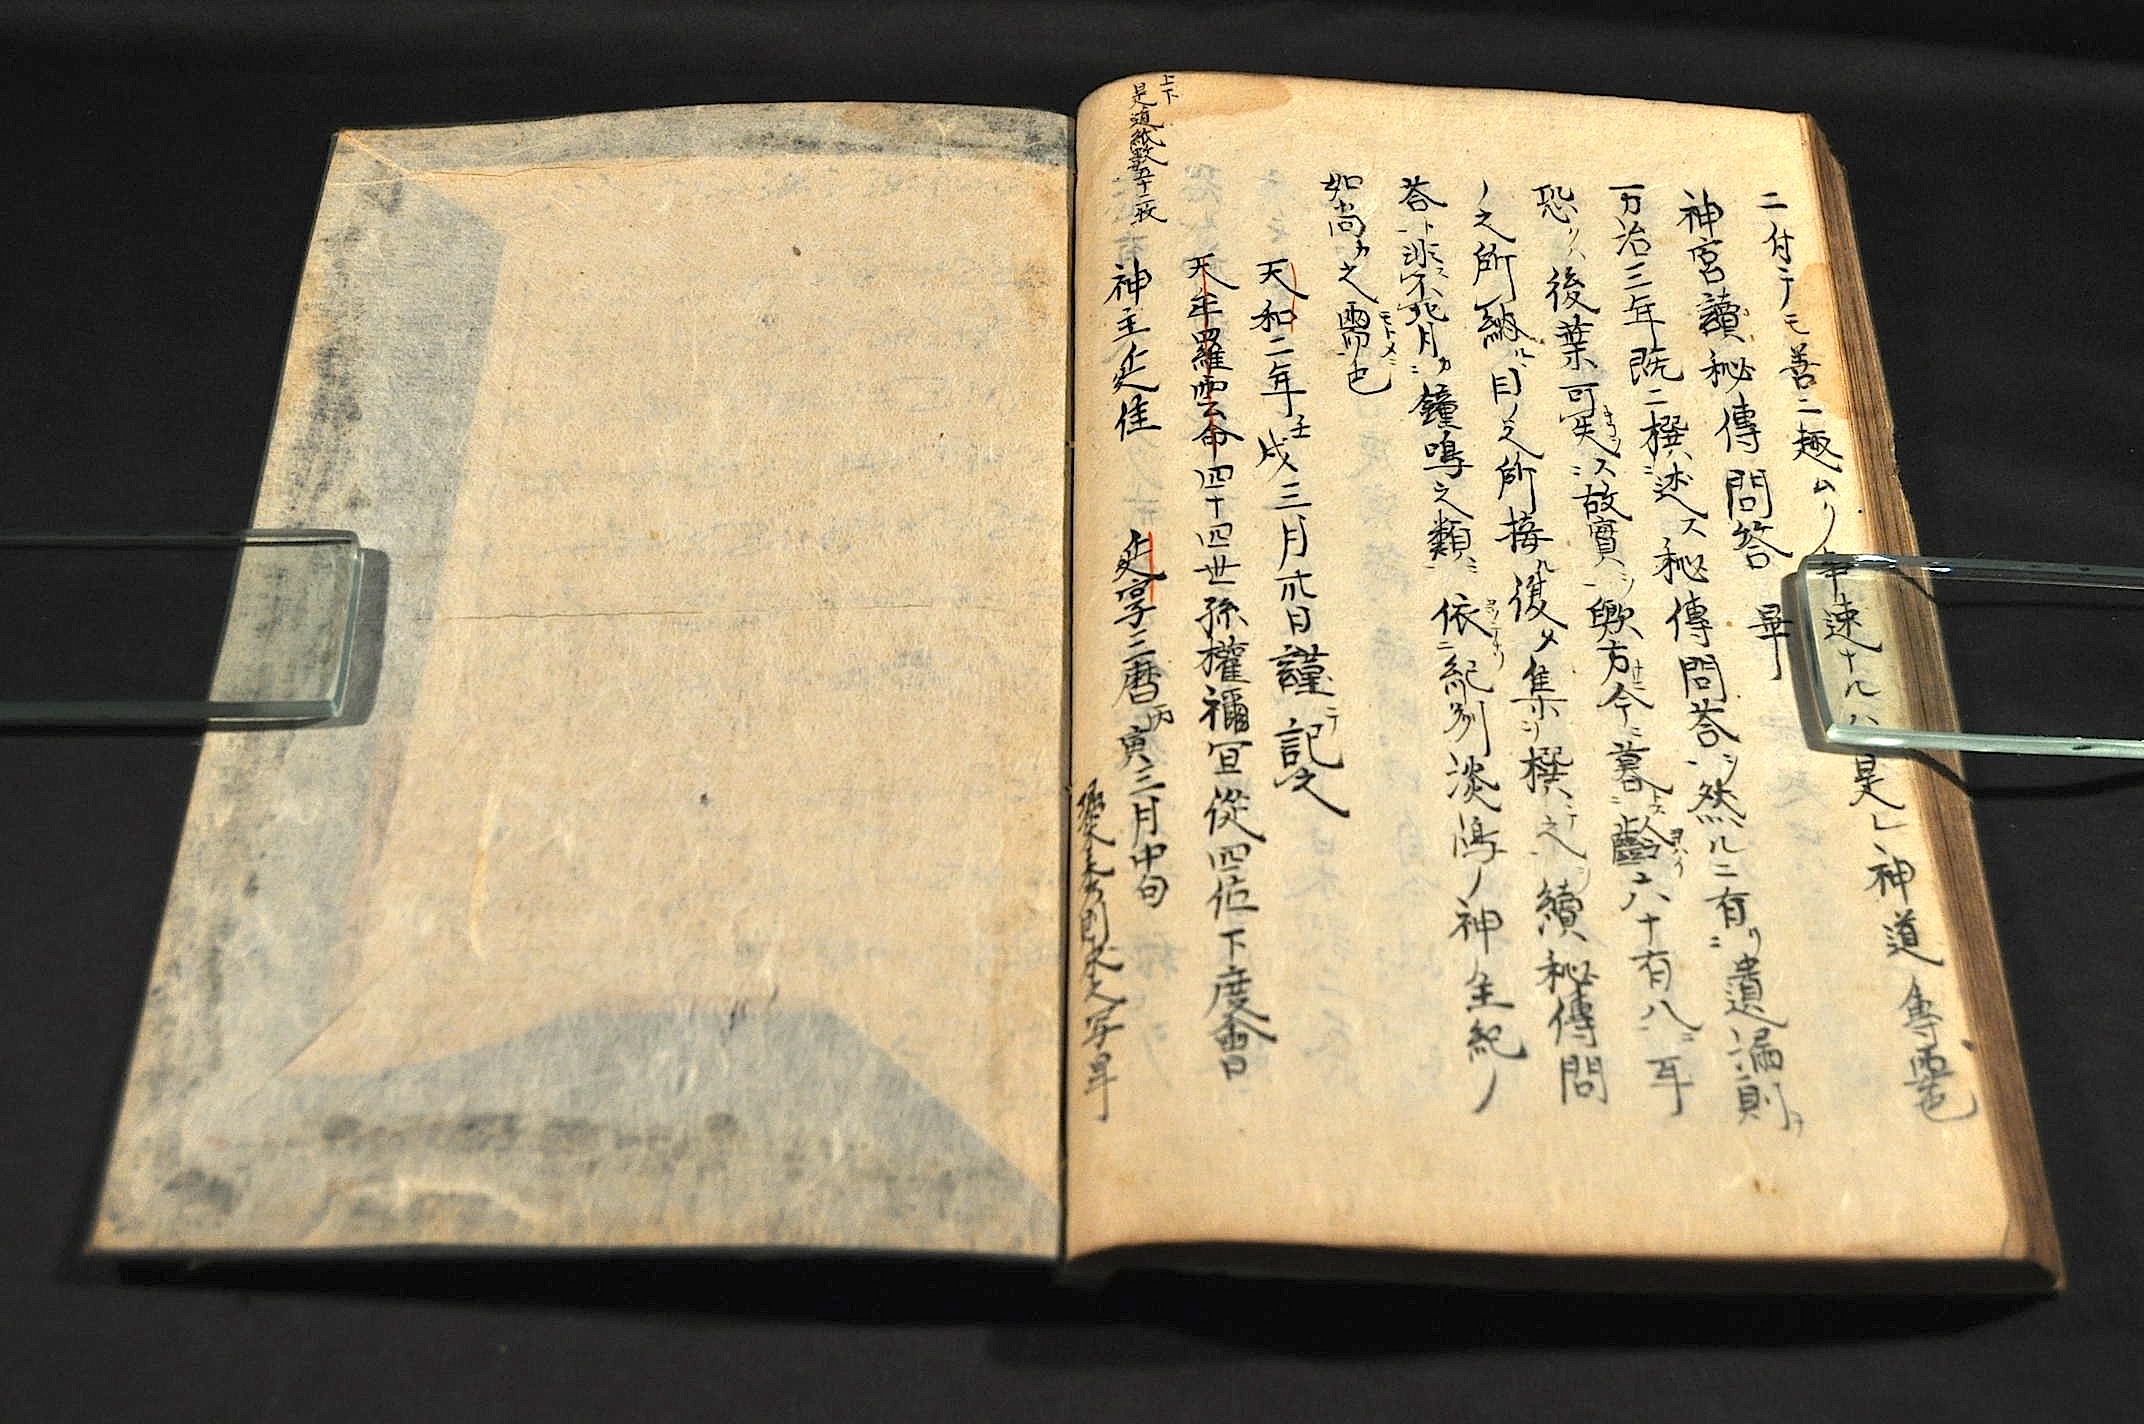 ニ付テモ善ニ趣ムノ事速ナルハ是レ神道専要也
神宮讀秘傳問答 畢
万治三年既ニ撰述ス秘傳問答ヲ然ルニ有リ遺漏則
恐クハ後葉可失ス故實ヲ歟方今暮齢六十有八耳
ノ之所納ル目ノ之所接ル復タ集メ撰テ之續秘傳問
答ト非ス不死月ノ鐘鳴之類ニ依テ紀別淡嶋ノ神主紀ノ
如尚カ之需也
天和二年壬戌三月廿日謹テ記之
天牟羅雲命四十四世孫權禰宜從四位下度會
神主延佳 延享三暦丙寅三月中旬
写畢
上下
是道紙数五十二枚